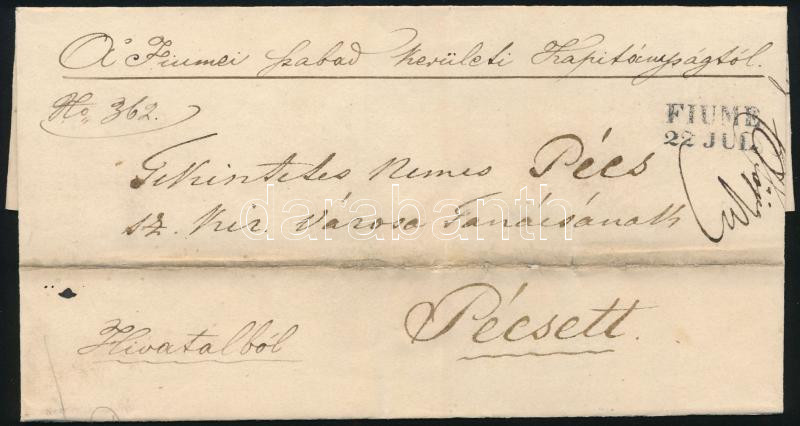 A' Fiumei szabad kerületi Kapitányságtól.
No. 362.
FIUME
22 JUL
Tekintetes Nemes Pécs
sz. kir. Városa Tanácsának
darabanth
Pécsett.
Hivatalból